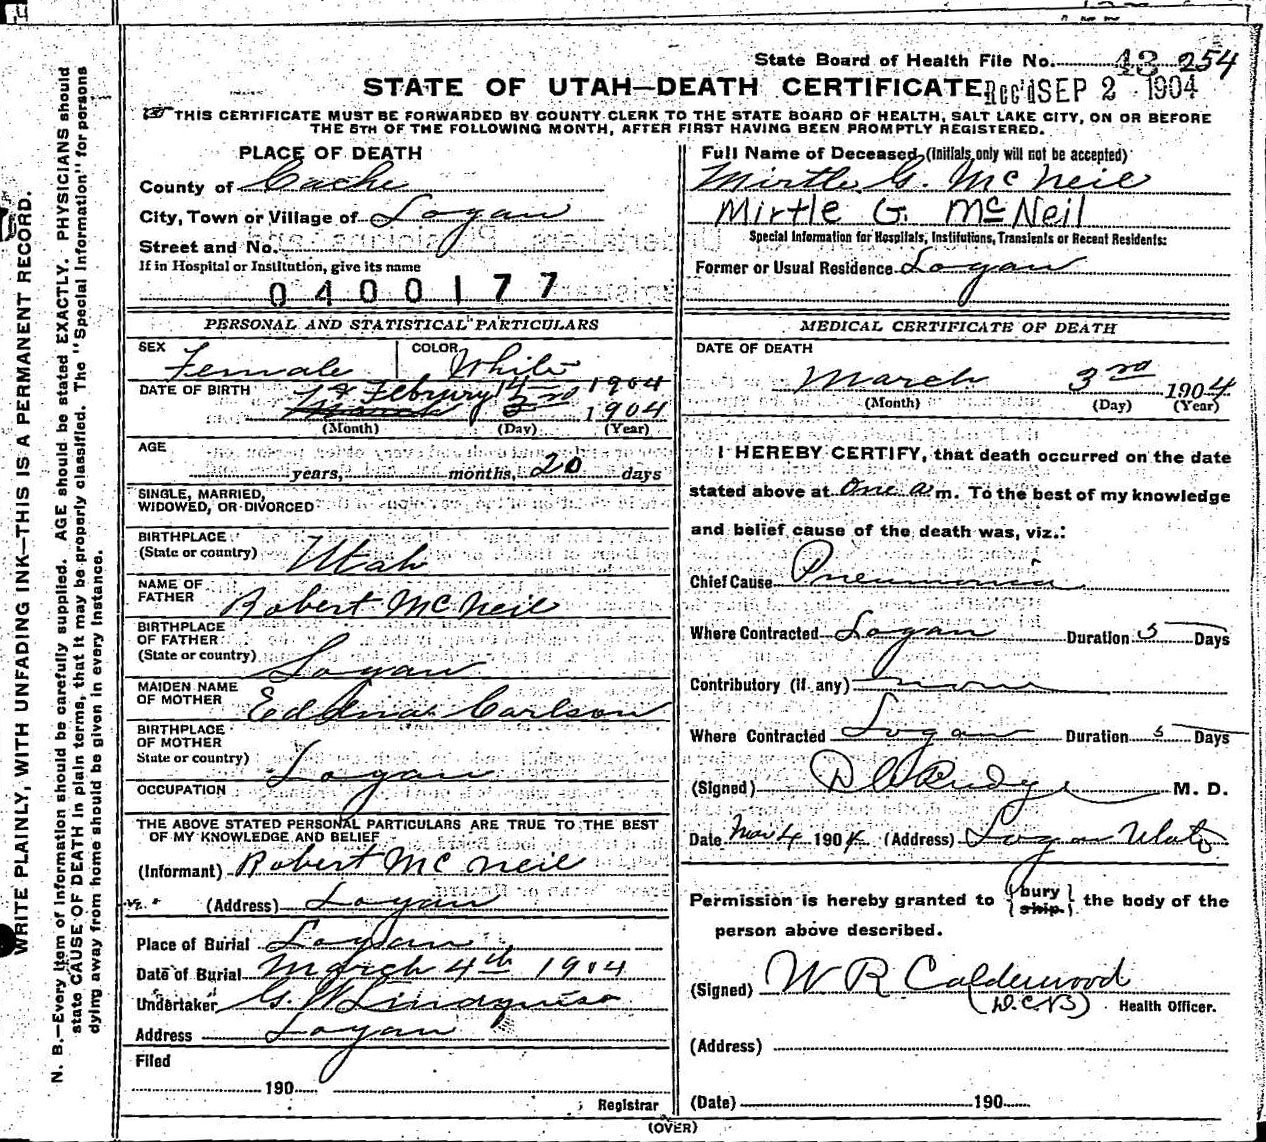 State Board of Health File No. 43 254
STATE OF UTAH—DEATH CERTIFICATE
Rec'd SEP 2 1904
THIS CERTIFICATE MUST BE FORWARDED BY COUNTY CLERK TO THE STATE BOARD OF HEALTH, SALT LAKE CITY, ON OR BEFORE
THE 5TH OF THE FOLLOWING MONTH, AFTER FIRST HAVING BEEN PROMPTLY REGISTERED.
WRITE PLAINLY, WITH UNFADING INK—THIS IS A PERMANENT RECORD.
N. B.—Every item of information should be carefully supplied. AGE should be stated EXACTLY. PHYSICIANS should
state CAUSE OF DEATH in plain terms, that it may be properly classified. The "Special Information" for persons
dying away from home should be given in every instance.
PLACE OF DEATH
County of Cache
City, Town or Village of Logan
Street and No.
If in Hospital or Institution, give its name
0400177
PERSONAL AND STATISTICAL PARTICULARS
SEX Female COLOR White
DATE OF BIRTH Februry 14 1904
March 3rd 1904
(Month) (Day) (Year)
AGE
years, months, 20 days
SINGLE, MARRIED,
WIDOWED, OR DIVORCED
BIRTHPLACE
(State or country) Utah
NAME OF
FATHER Robert McNeil
BIRTHPLACE
OF FATHER
(State or country) Logan
MAIDEN NAME
OF MOTHER Carlson
BIRTHPLACE
OF MOTHER
State or country) Logan
OCCUPATION
THE ABOVE STATED PERSONAL PARTICULARS ARE TRUE TO THE BEST
OF MY KNOWLEDGE AND BELIEF
(Informant) Robert McNeil
(Address) Logan
Place of Burial Logan
Date of Burial March 4th 1904
Undertaker G. W Lindquist
Address Logan
Filed
190
Registrar
Full Name of Deceased, (Initials only will not be accepted)
Mirtle G. McNeil
Mirtle G. McNeil
Special Information for Hospitals, Institutions, Transients or Recent Residents:
Former or Usual Residence Logan
MEDICAL CERTIFICATE OF DEATH
DATE OF DEATH
March 3rd 1904
(Month) (Day) (Year)
I HEREBY CERTIFY, that death occurred on the date
stated above at One a m. To the best of my knowledge
and belief cause of the death was, viz.:
Chief Cause Pneumonia
Where Contracted Logan Duration 5 Days
Contributory (if any) none
Where Contracted Logan Duration 5 Days
(Signed) M. D.
Date Mar 4 1904 (Address) Logan Utah
Permission is hereby granted to {bury ship.} the body of the
person above described.
(Signed) W R Calderwood
Health Officer.
(Address)
(Date) 190
(OVER)